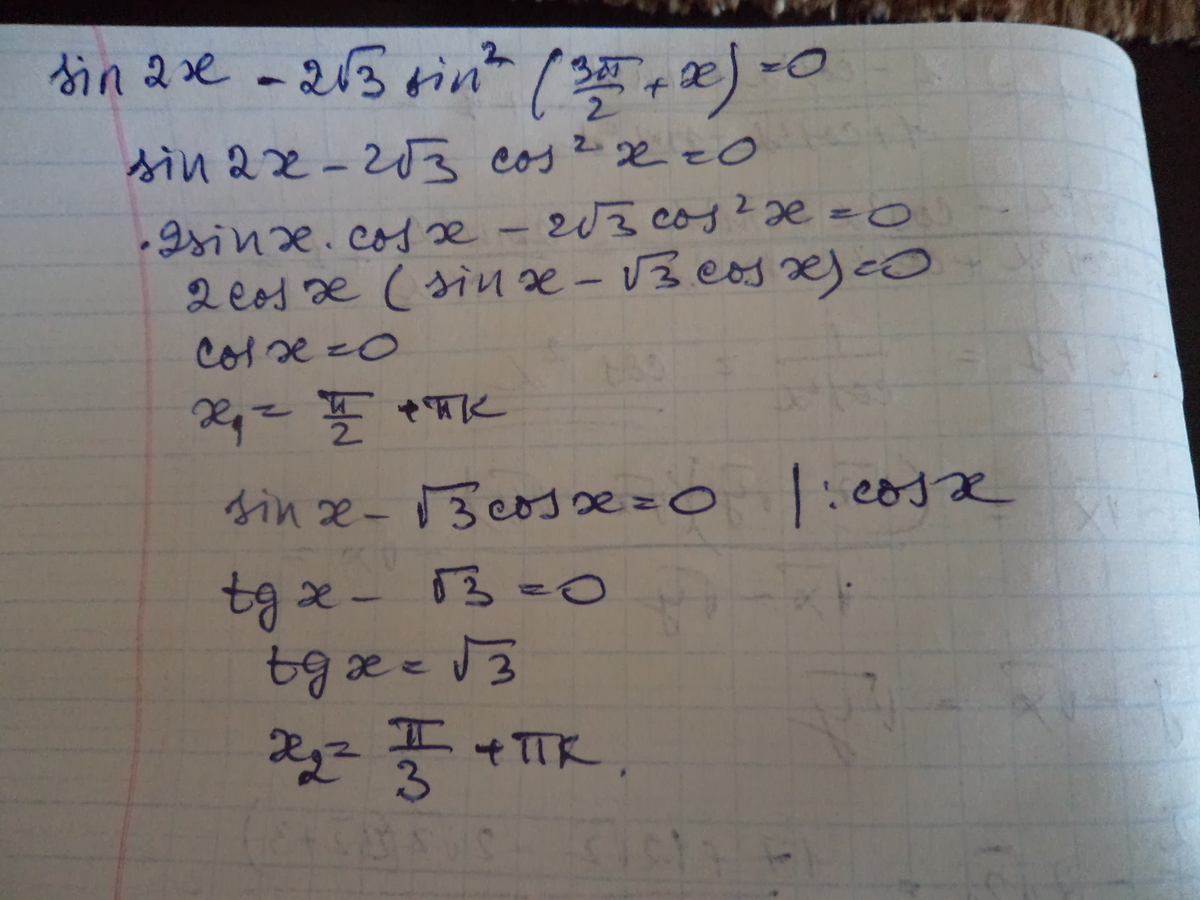 sin 2x - 2√3 sin² (3π/2 + x) = 0
sin 2x - 2√3 cos² x = 0
2sin x · cos x - 2√3 cos² x = 0
2cos x (sin x - √3 cos x) = 0
cos x = 0
x₁ = π/2 + πk
sin x - √3 cos x = 0 | : cos x
tg x - √3 = 0
tg x = √3
x₂ = π/3 + πk.